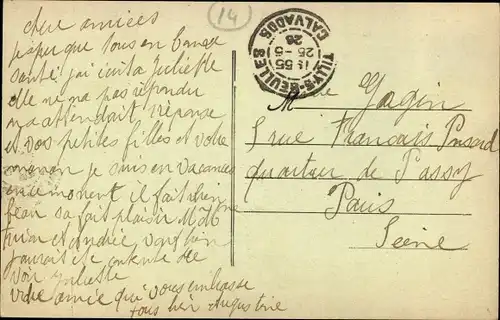 chere amices
14
j'espere que tous en bonne
santé j'ai écrit a Juliette
elle ne ma pas répondu
ma attendait réponse
et vos petites filles et votre
maman je suis en vacances
en ce moment il fait bien
beau sa fait plaisir
et Andrée vous bien
contente de
voir Juliette
votre amie qui vous embrasse
tous bien Augustine
TILLY-S-SEULLES
CALVADOS
11 55
25-5
26
Mme Gagin
5 rue François Ponsard
quartier de Passy
Paris
Seine